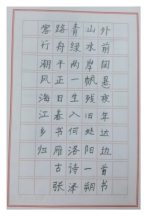 客路青山外
行舟绿水前
潮平两岸阔
风正一帆悬
海日生残夜
江春入旧年
乡书何处达
归雁洛阳边
古诗一首
张泽朔书